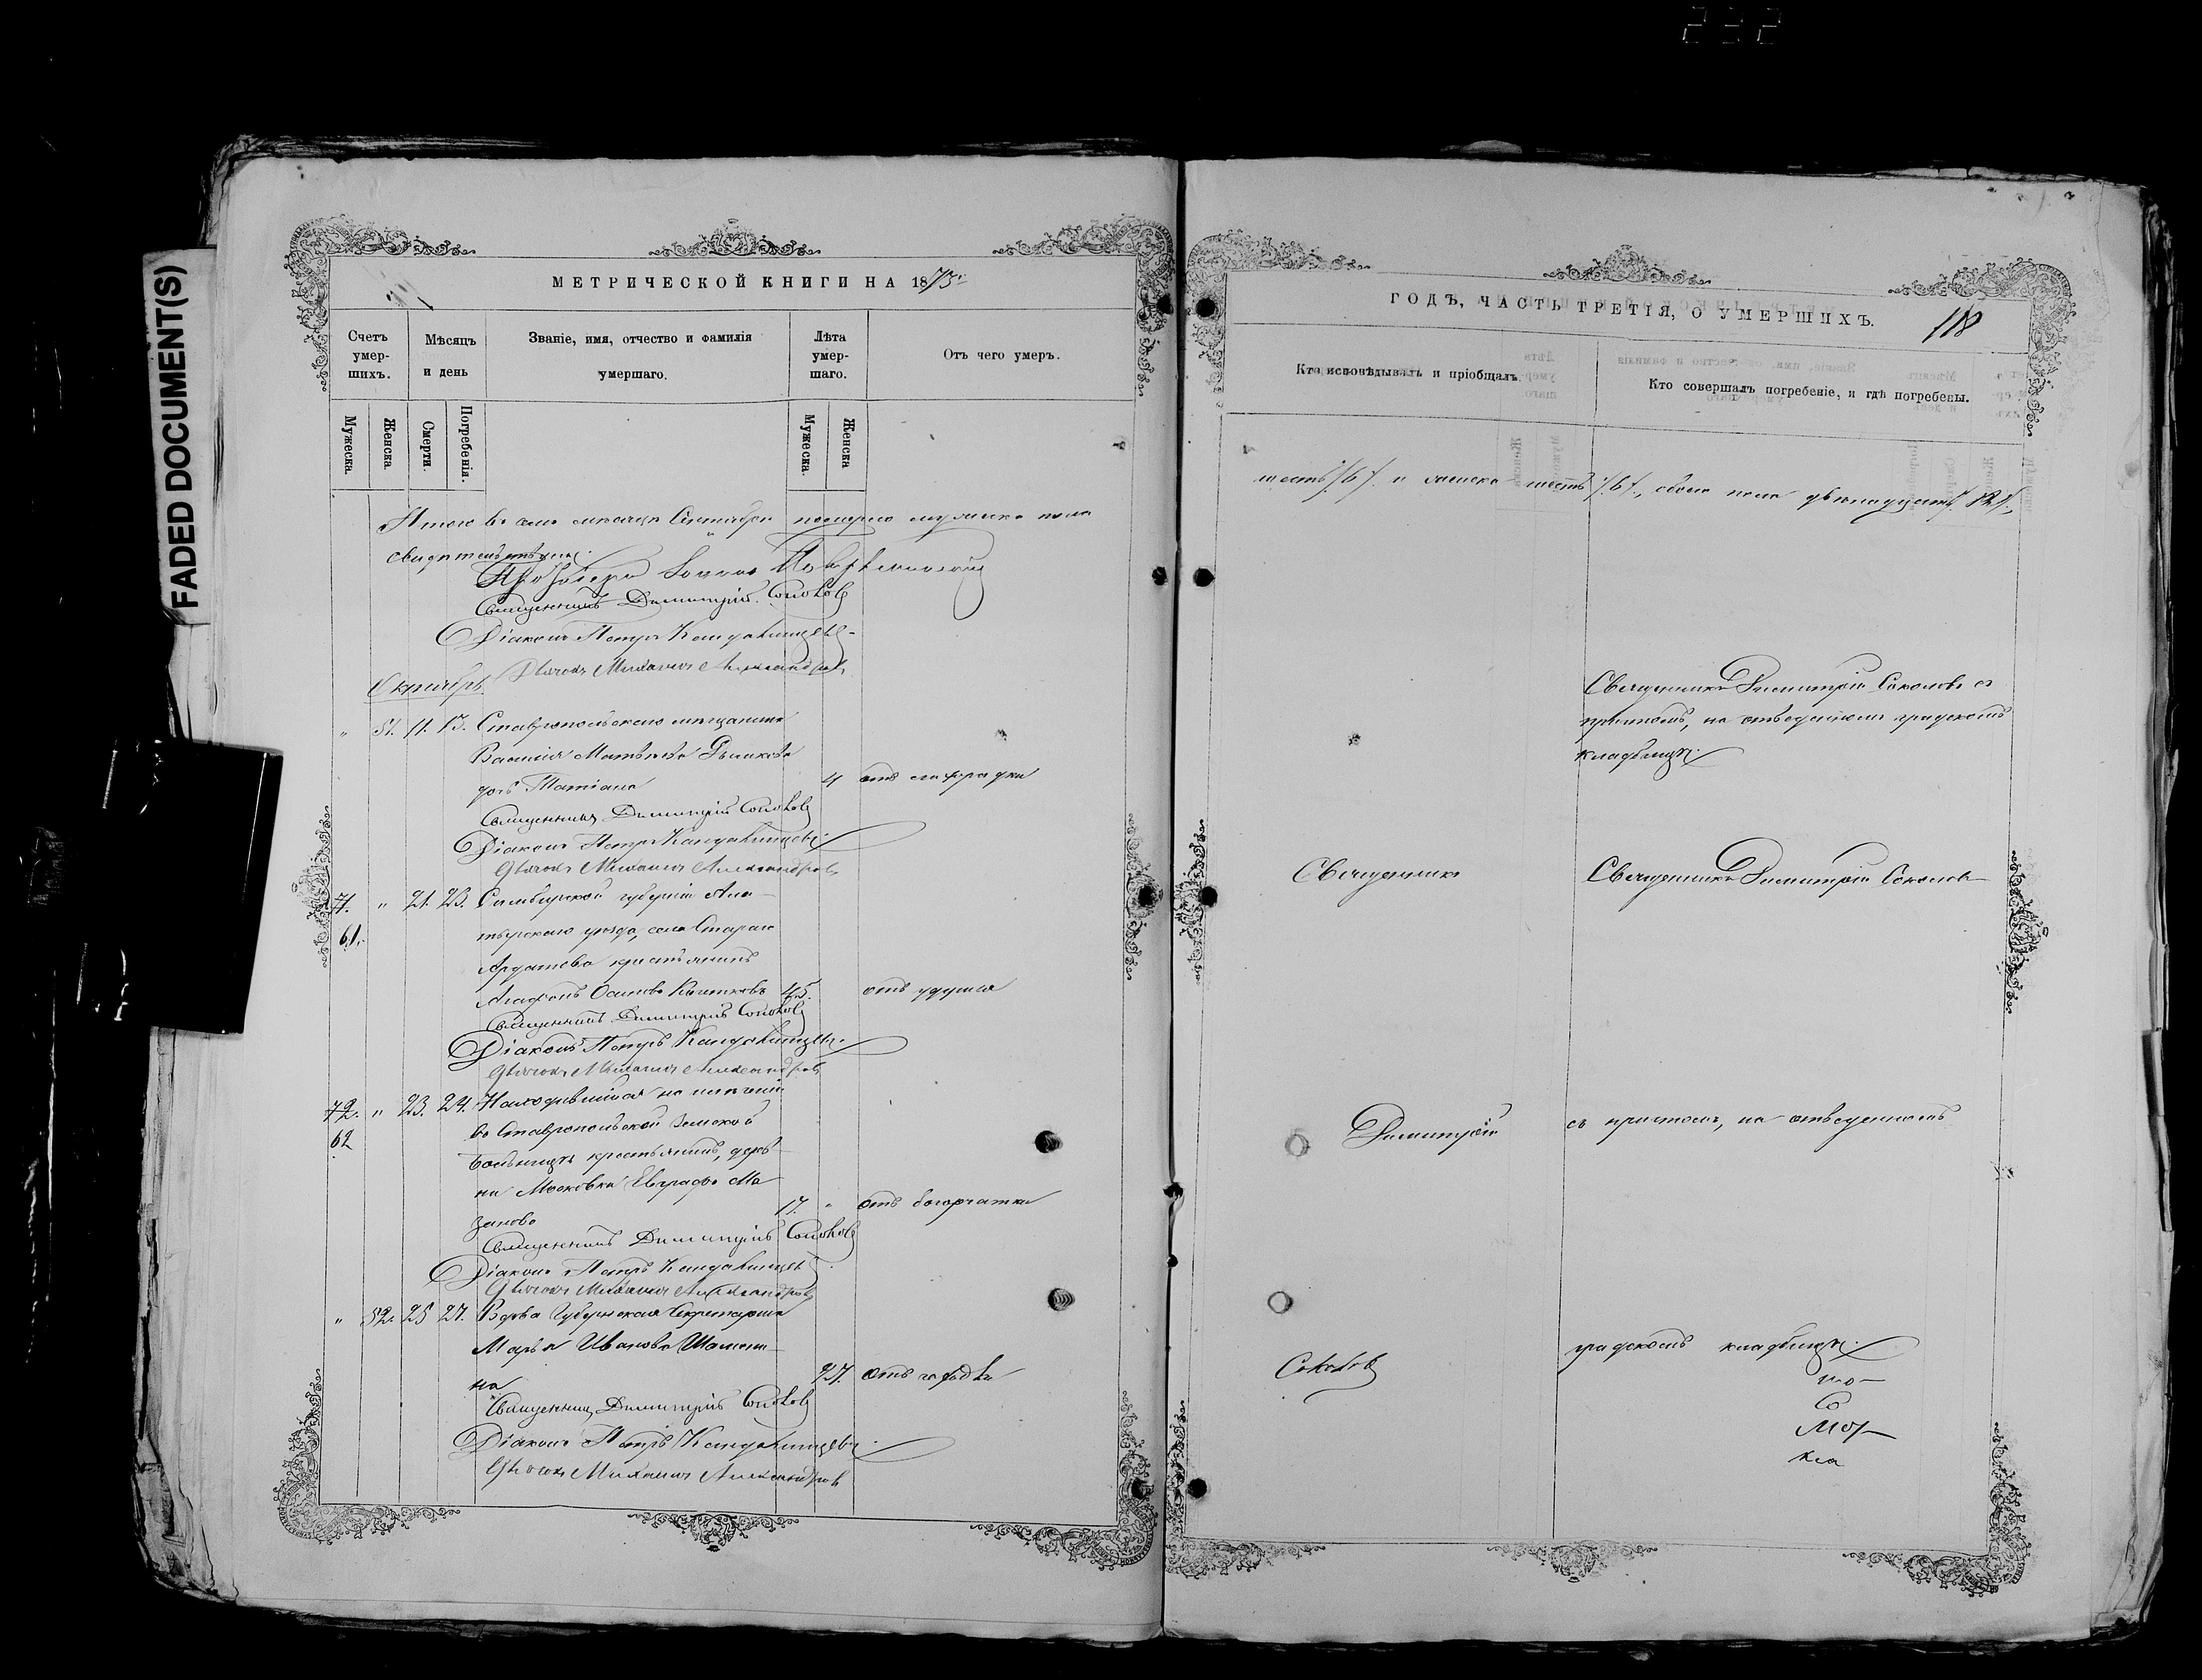 232
FADED DOCUMENT(S)
МЕТРИЧЕСКОЙ КНИГИ НА 1873.
Счетъ умер-шихъ.
Мѣсяцъ и день
Званіе, имя, отчество и фамилія умершаго.
Лѣта умер-шаго.
Отъ чего умеръ.
Мужеска.
Женска.
Смерти.
Погребенія.
Мужеска.
Женска
Итого въ семъ мѣсяцѣ Сентябрѣ померло мужеска пола
Свидѣтельствуемъ:
Священникъ Димитрій Соколовъ
Діаконъ Петръ
Дьячокъ Михаилъ Александровъ
Октябрь
" 51. 11. 13. Ставропольскаго мѣщанина
Василія Матвѣева
дочь Татіана 4 отъ лихорадки
Священникъ Димитрій Соколовъ
Діаконъ Петръ
Дьячокъ Михаилъ Александровъ
71. " 21. 23. Симбирской губерніи Ала-
61. тырскаго уѣзда, села Стараго
Ардатова крестьянинъ
Агафонъ Осиповъ 45. отъ удушья
Священникъ Димитрій Соколовъ
Діаконъ Петръ
Дьячокъ Михаилъ Александровъ
72. " 23. 24. Находившійся на излеченіи
62 въ Ставропольской Земской
больницѣ крестьянинъ, дерев-
ни Московки Евграфъ Ма-
зановъ 17. " отъ горячки
Священникъ Димитрій Соколовъ
Діаконъ Петръ
Дьячокъ Михаилъ Александровъ
" 52. 25 27. Вдова Губернская Секретарша
Марья Иванова
на 27. отъ
Священникъ Димитрій Соколовъ
Діаконъ Петръ
Дьячокъ Михаилъ Александровъ
ГОДЪ, ЧАСТЬ ТРЕТІЯ, О УМЕРШИХЪ.
118
Кто исповѣдывалъ и пріобщалъ.
Кто совершалъ погребеніе, и гдѣ погребены.
шесть /6/. и женска шесть /6/, обоего пола двѣнадцать /12/.,
Священникъ Димитрій Соколовъ съ
причтомъ, на отведенномъ градскомъ
кладбищѣ.
Священникъ
Священникъ Димитрій Соколовъ
Димитрій
съ причтомъ, на отведенномъ
Соколовъ
градскомъ кладбищѣ.